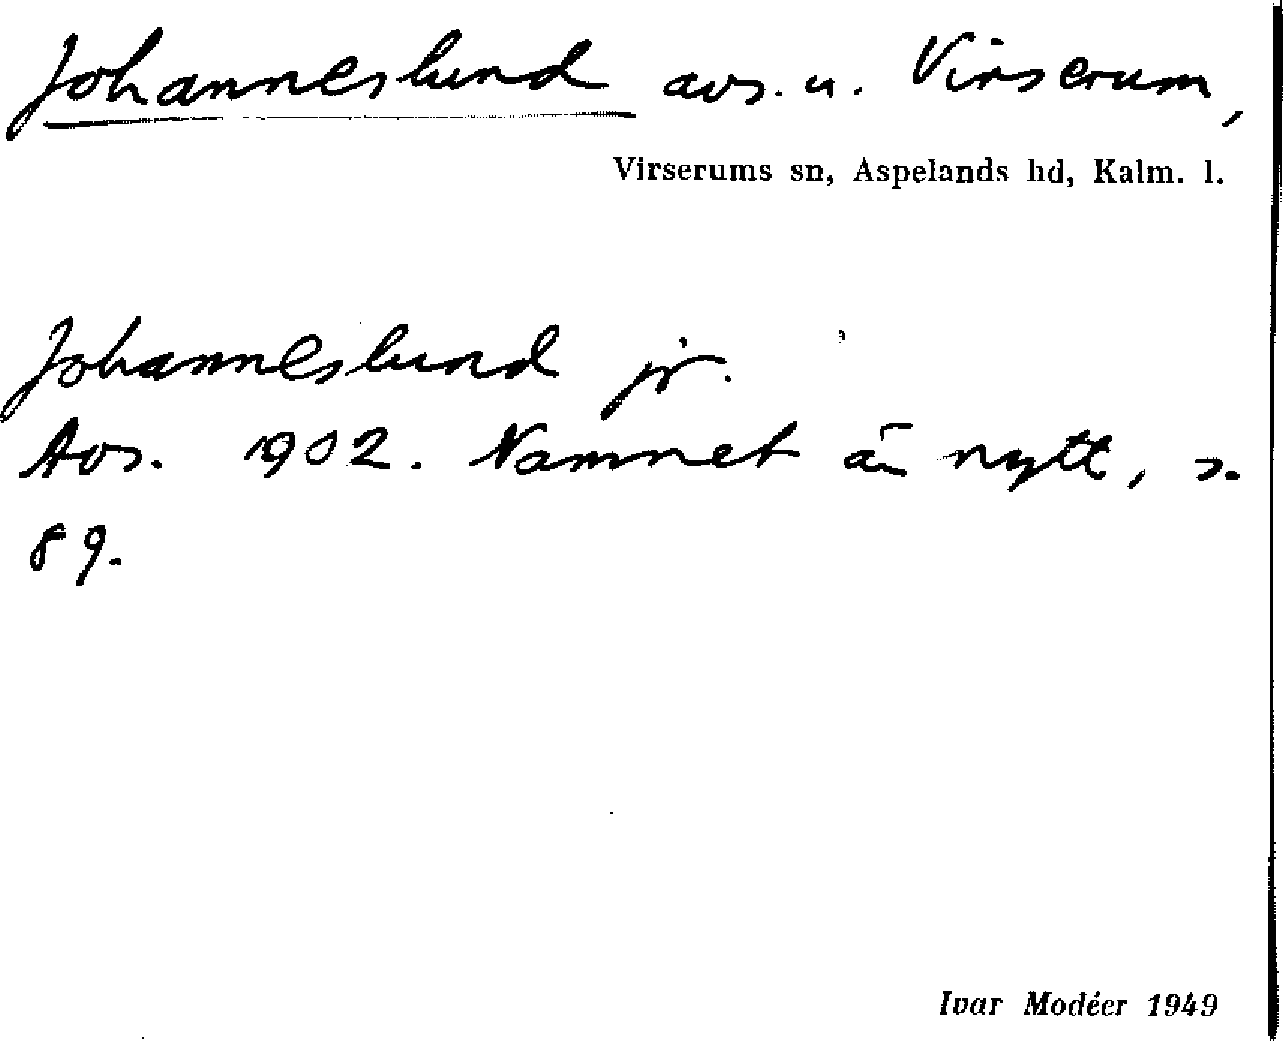 Johanneslund avs. u. Virserum,
Virserums sn, Aspelands hd, Kalm. l.
Johanneslund jr.
Avs. 1902. Namnet är nytt, s.
89.
Ivar Modéer 1949